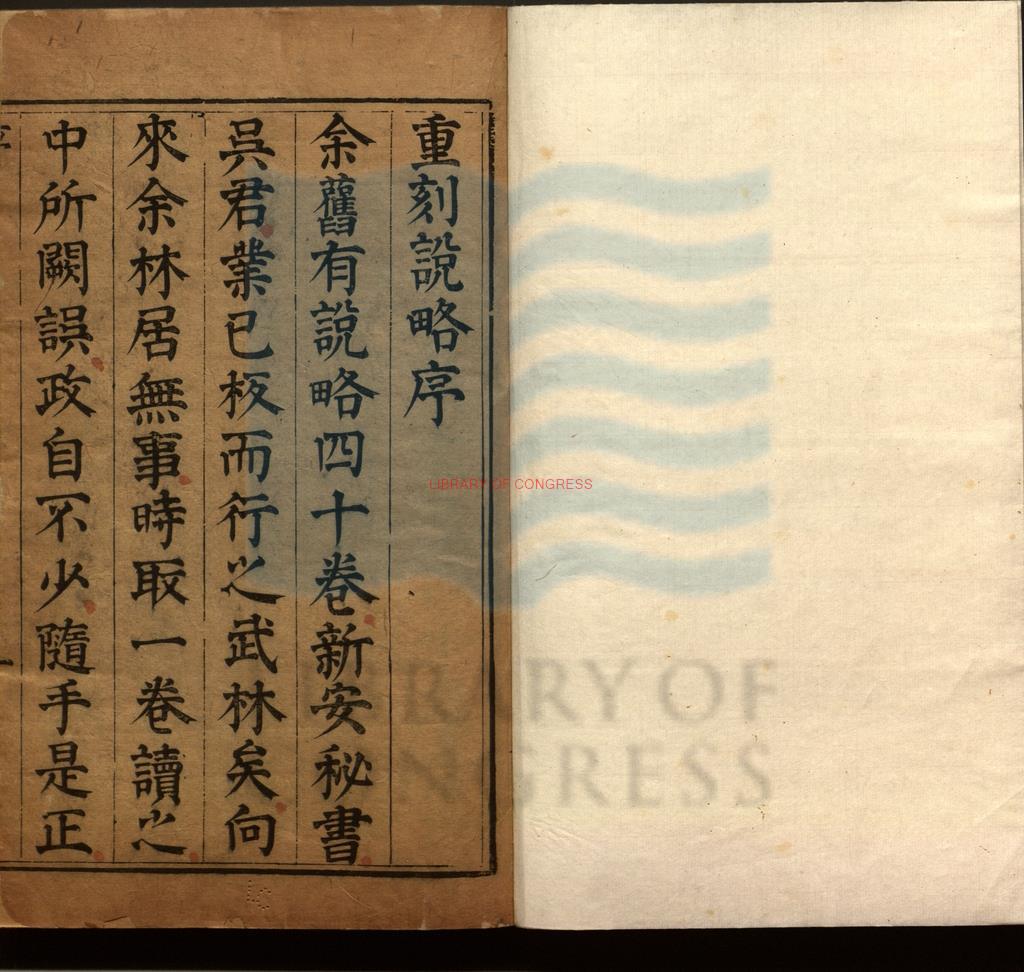 重刻說略序
余舊有說略四十卷新安秘書
吳君業已板而行之武林矣向
來余林居無事時取一卷讀之
中所闕誤政自不少隨手是正
LIBRARY OF CONGRESS
LIBRARY OF
CONGRESS